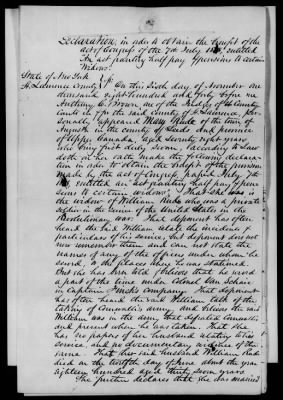 Declaration, in order to obtain the benefit of the
act of Congress of the 7th July 1838, entitled
An act granting half pay & pensions to certain
Widows.
State of New York
St Lawrence County } ss. On this Sixth day of November one
thousand eight hundred and forty before me
Anthony C. Brown one of the Judges of the County
Courts in & for the said County of St Lawrence, Per-
sonally appeared Mary Ruke of the town of
Augusta in the County of Leeds and province
of Upper Canada, aged seventy eight years
who being first duly sworn, according to Law
doth on her oath make the following declara-
tion in order to obtain the benefit of the provision
made by the act of Congress passed July 7th
1838, entitled an act granting half pay & pen-
sions to certain widows: That she was is
the widow of William Ruke who was a private
soldier in the Army of the United States in the
Revolutionary war: That deponent has often
heard the said William relate the incidents &
particulars of his service, but deponent does not
now remember them and can not state the
names of any of the officers under whom he
served, or the places where he was stationed.
But she has been told & believes that he served
a part of the time under Colonel Van Schaic
in Captain Finck's Company. That deponent
has often heard the said William talk of the
taking of Cornwallis's army, and believes the said
William was in the army that defeated Cornwallis
and present when he was taken. That she
has no papers of her husband relating to his
service, and no documentary evidence of the
same. That her said husband William Ruke
died on the twelfth day of June about the year
eighteen hundred and thirty seven years.
She further declares that she was married